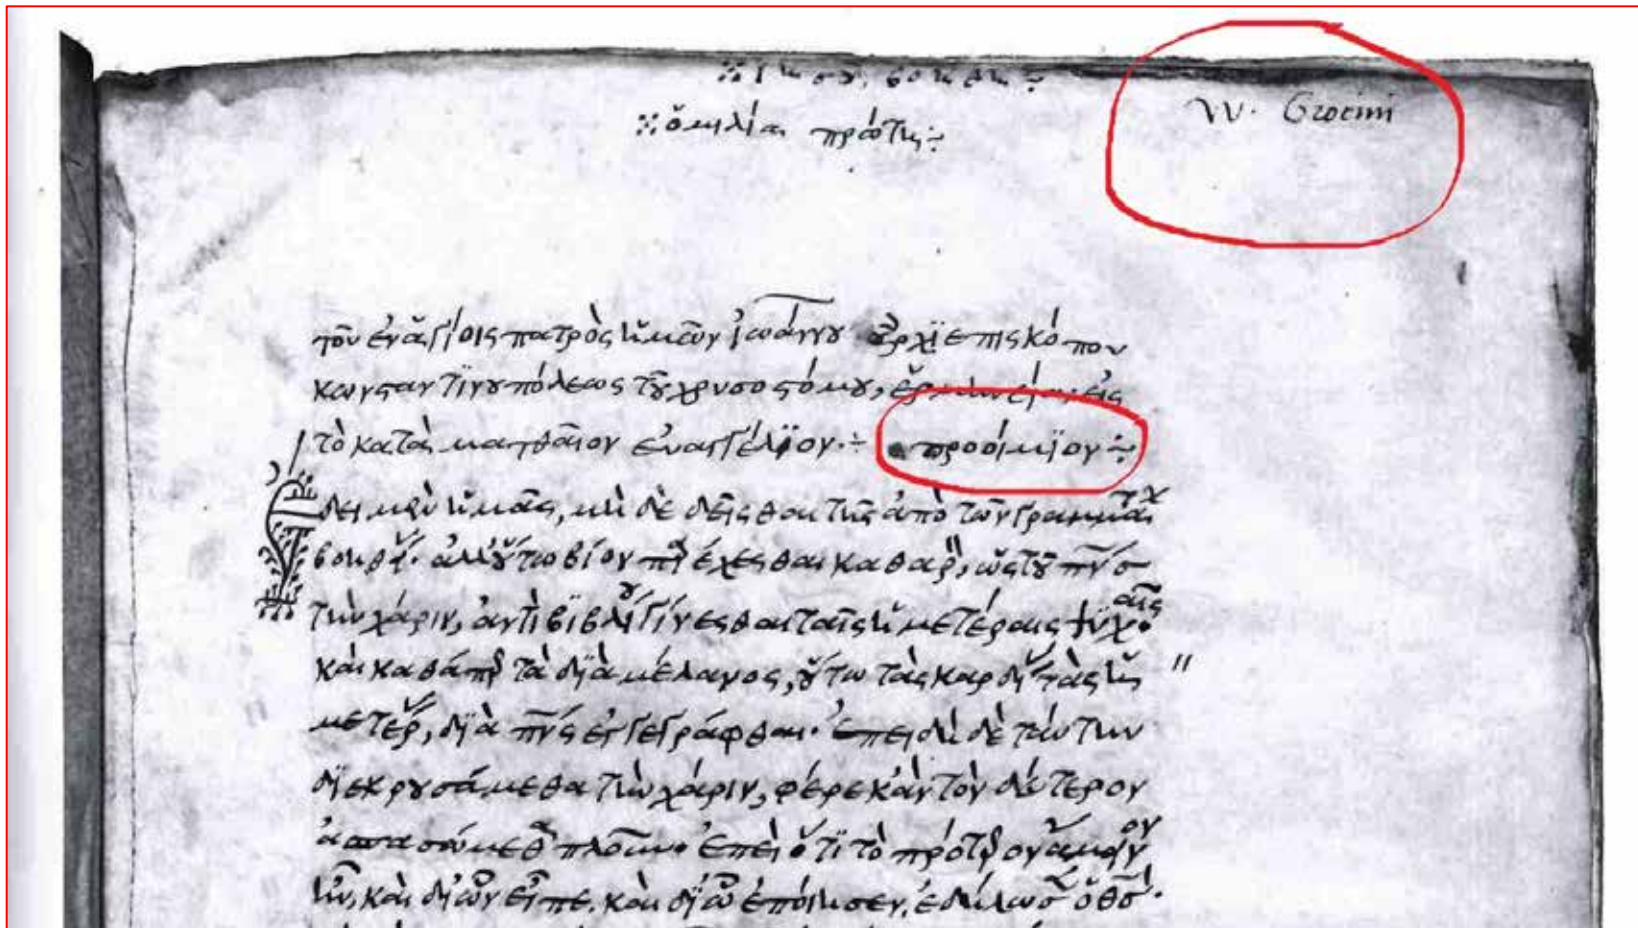 W. Grocini
ὁμιλία πρώτη
τοῦ ἐν ἁγίοις πατρὸς ἡμῶν ἰωάννου ἀρχϊεπισκόπου
κωνσταντϊνουπόλεως τοῦ χρυσοστόμου, ἑρμηνεία εἰς
τὸ κατὰ ματθαῖον εὐαγγέλϊον ÷ προοίμϊον ÷
Ἔδει μὲν ἡμᾶς, μὴ δὲ δεῖσθαι τῆς ἀπὸ τῶν γραμμάτ
βοηθεί. ἀλλ' οὕτω βίον παρέχεσθαι καθαρὸν, ὡς τοῦ πνς
τὴν χάριν, ἀντὶ βϊβλίου γίνεσθαι ταῖς ἡμετέραις ψϋχαῖς
καὶ καθάπερ ταῦτα δϊὰ μέλανος, οὕτω τὰς καρδίας τὰς ἡ
μετέρ, δϊὰ πνς ἐγγεγράφθαι. ἐπειδὴ δὲ ταύτην
δϊεκρουσάμεθα τὴν χάριν, φέρε κἂν τὸν δεύτερον
ἀσπασώμεθα πλοῦν. ἐπεὶ ὅτϊ τὸ πρότερον ἄμεινον
ἦν, καὶ δι' ὧν εἶπε, καὶ δι' ὧν ἐποίησεν, ἐδήλωσεν ὁ θς.